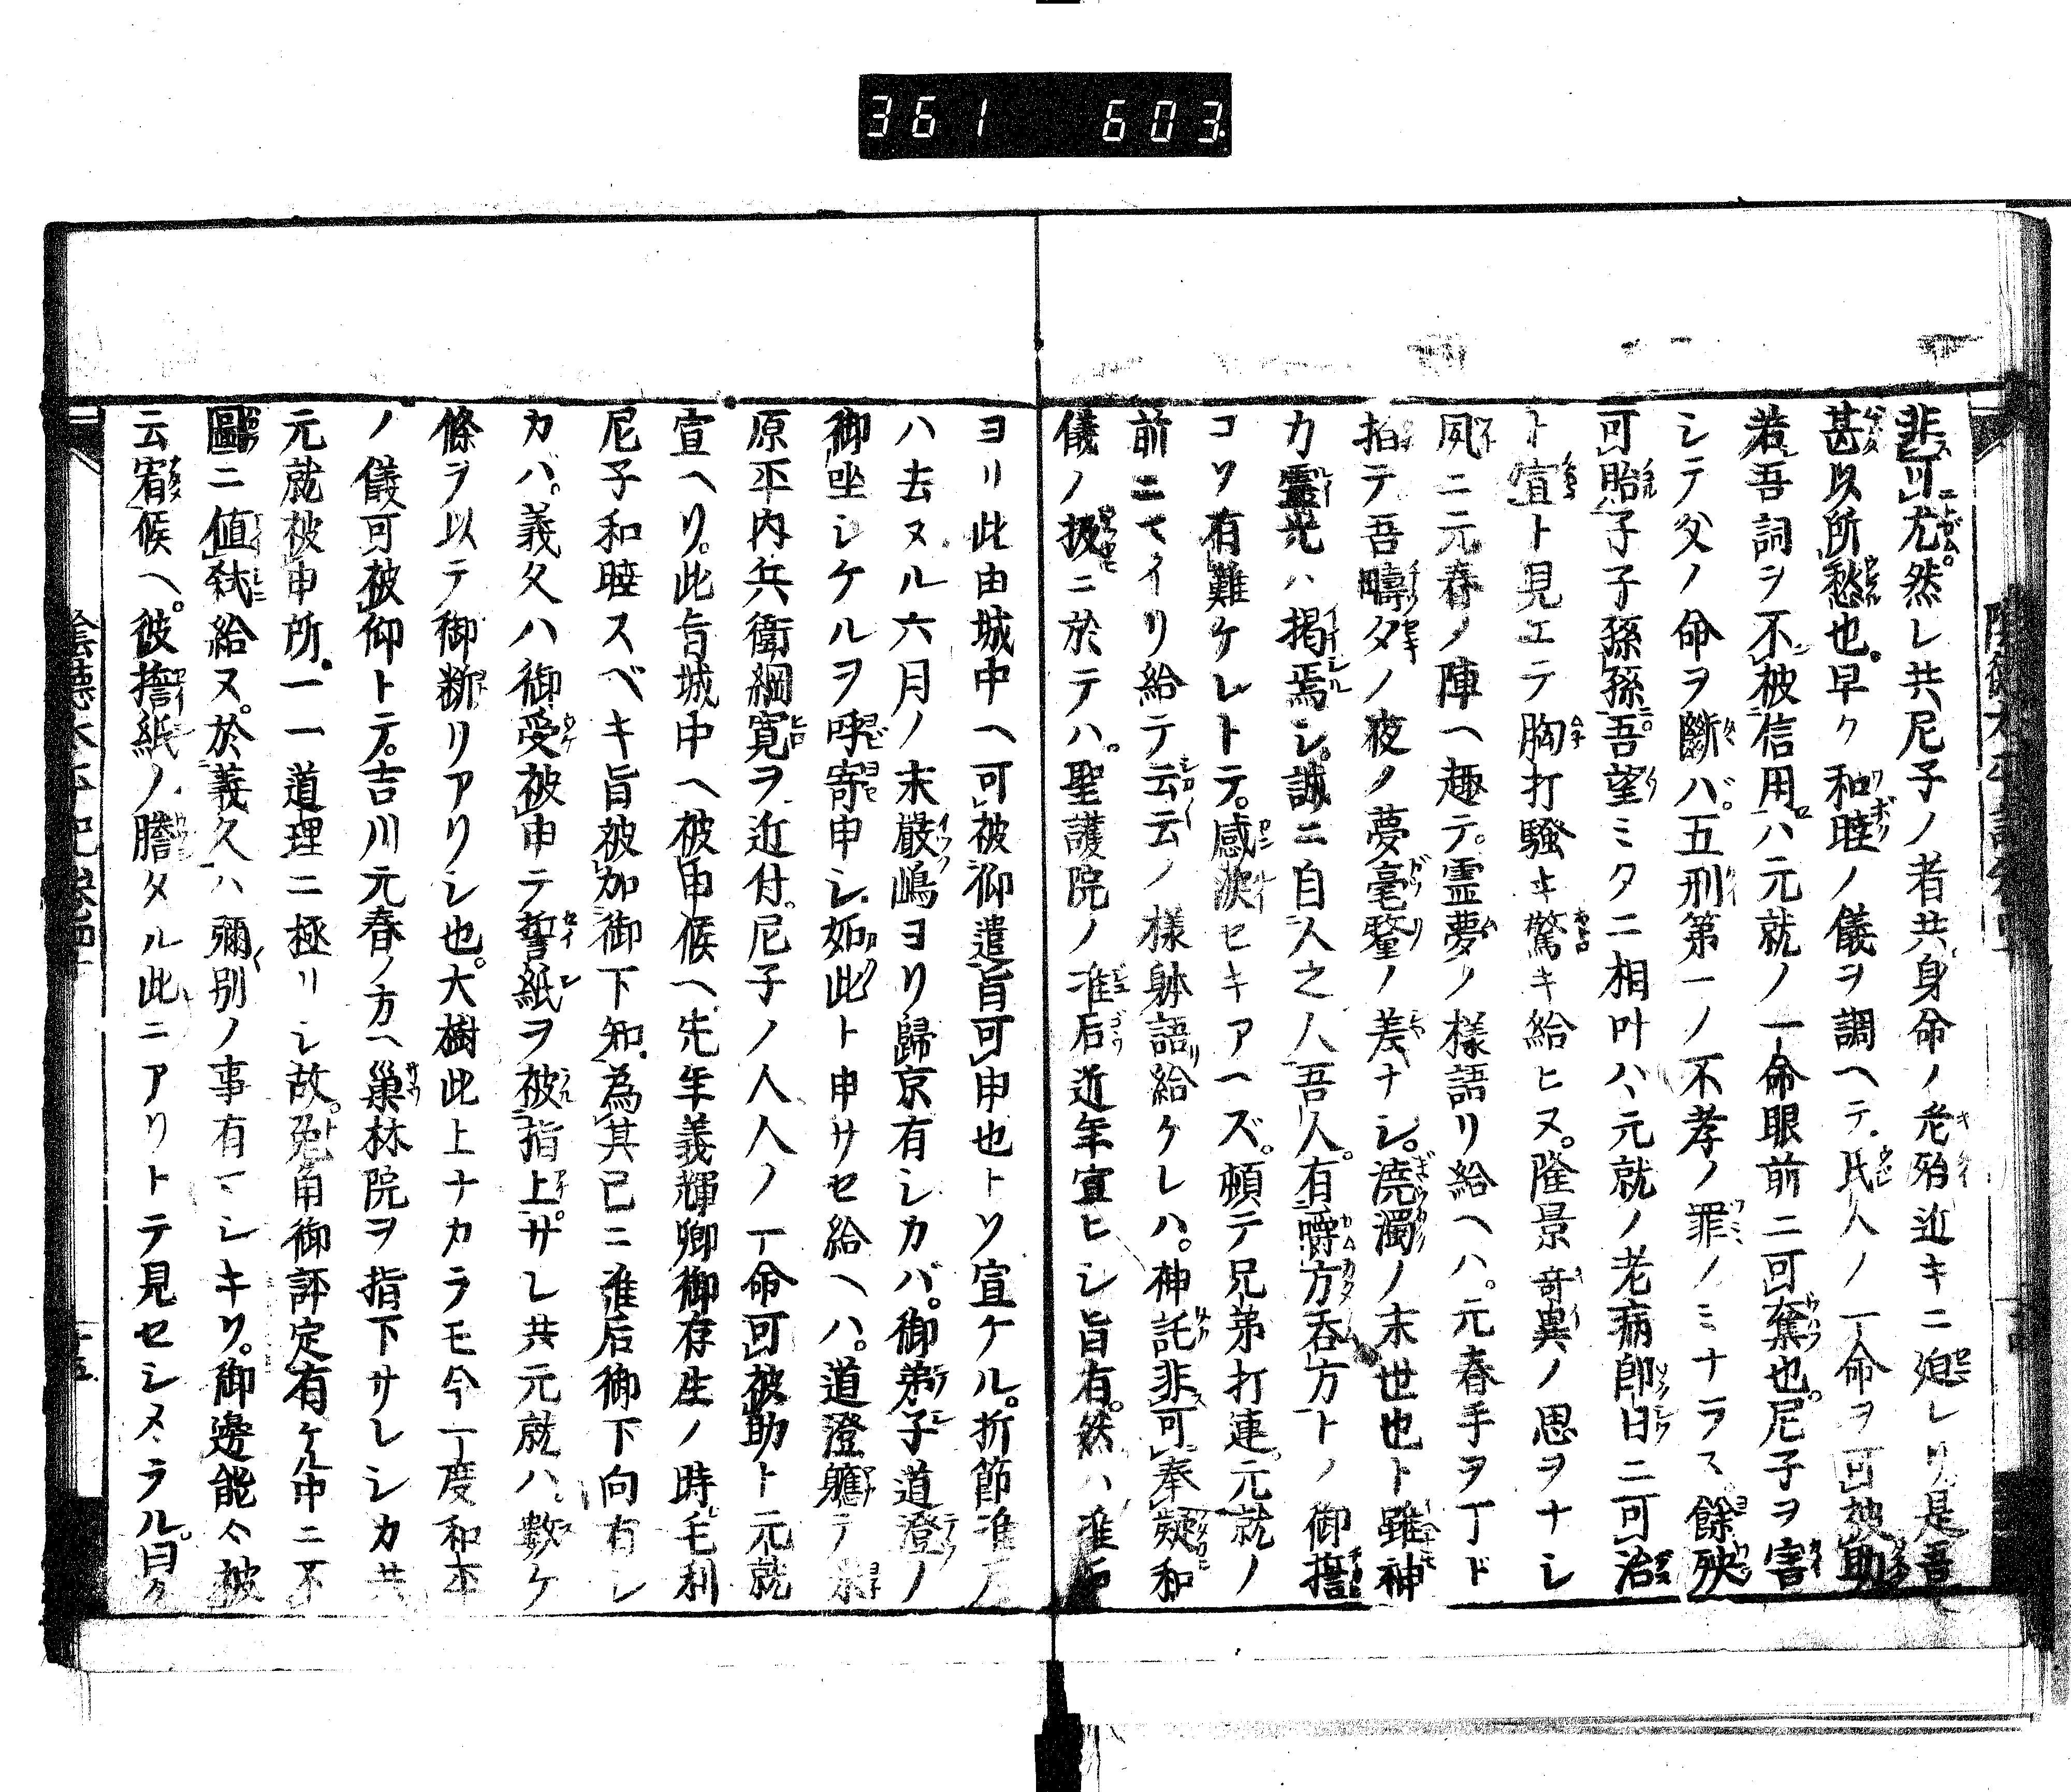 361 603
非可尤。然レ共尼子ノ者共身命ノ危殆近キニ廹レリ是吾
甚以所愁也。早ク和睦ノ儀ヲ調ヘテ氏人ノ一命ヲ可被助
若吾詞ヲ不被信用ハ元就ノ一命眼前ニ可奪也。尼子ヲ害
シテ父ノ命ヲ斷バ。五刑第一ノ不孝ノ罪ノミナラス餘殃
可胎子子孫孫。吾望ミタニ相叶ハヽ元就ノ老病即日ニ可治
ト宣ト見エテ胸打騒キ驚キ給ヒヌ。隆景奇異ノ思ヲナシ
夙ニ元春ノ陣ヘ趣テ。霊夢ノ様語リ給ヘハ。元春手ヲ丁ド
拍テ吾疇夕ノ夜ノ夢毫釐ノ差ナシ。澆濁ノ末世也ト雖神
力霊光ハ掲焉シ。誠ニ自人之人吾人。有嚼方呑方トノ御誓
コソ有難ケレトテ。感涙セキアヘズ。頓テ兄弟打連元就ノ
前ニマイリ給テ云云ノ様躰語リ給ケレハ。神託非可奉疑和
儀ノ扱ニ於テハ。聖護院ノ准后近年宣ヒシ旨有。然ハ准后
ヨリ此由城中ヘ可被仰遣旨可申也トソ宣ケル。折節准后
ハ去ヌル六月ノ末嚴嶋ヨリ歸京有シカバ。御弟子道澄ノ
御坐シケルヲ呼寄申シ如此ト申サセ給ヘハ。道澄軈テ
原平内兵衛綱寛ヲ近付。尼子ノ人人ノ一命可被助ト元就
宣ヘリ。此旨城中ヘ被申候ヘ先年義輝卿御存生ノ時毛利
尼子和睦スベキ旨被加御下知。為其已ニ准后御下向有シ
カバ。義久ハ御受被申テ誓紙ヲ被指上。サレ共元就ハ數ケ
條ヲ以テ御断リアリシ也。大樹此上ナカラモ今一度和平
ノ儀可被仰トテ。吉川元春ノ方ヘ巣林院ヲ指下サレシカ共
元就被申所一一道理ニ極リシ故。兎角御評定有ケル中ニ不
圖ニ値弑給ヌ。於義久ハ彌別ノ事有マシキリ。御邊能々被
云宥候ヘ。彼誓紙ノ謄タル此ニアリトテ見セシメラル。曰ク